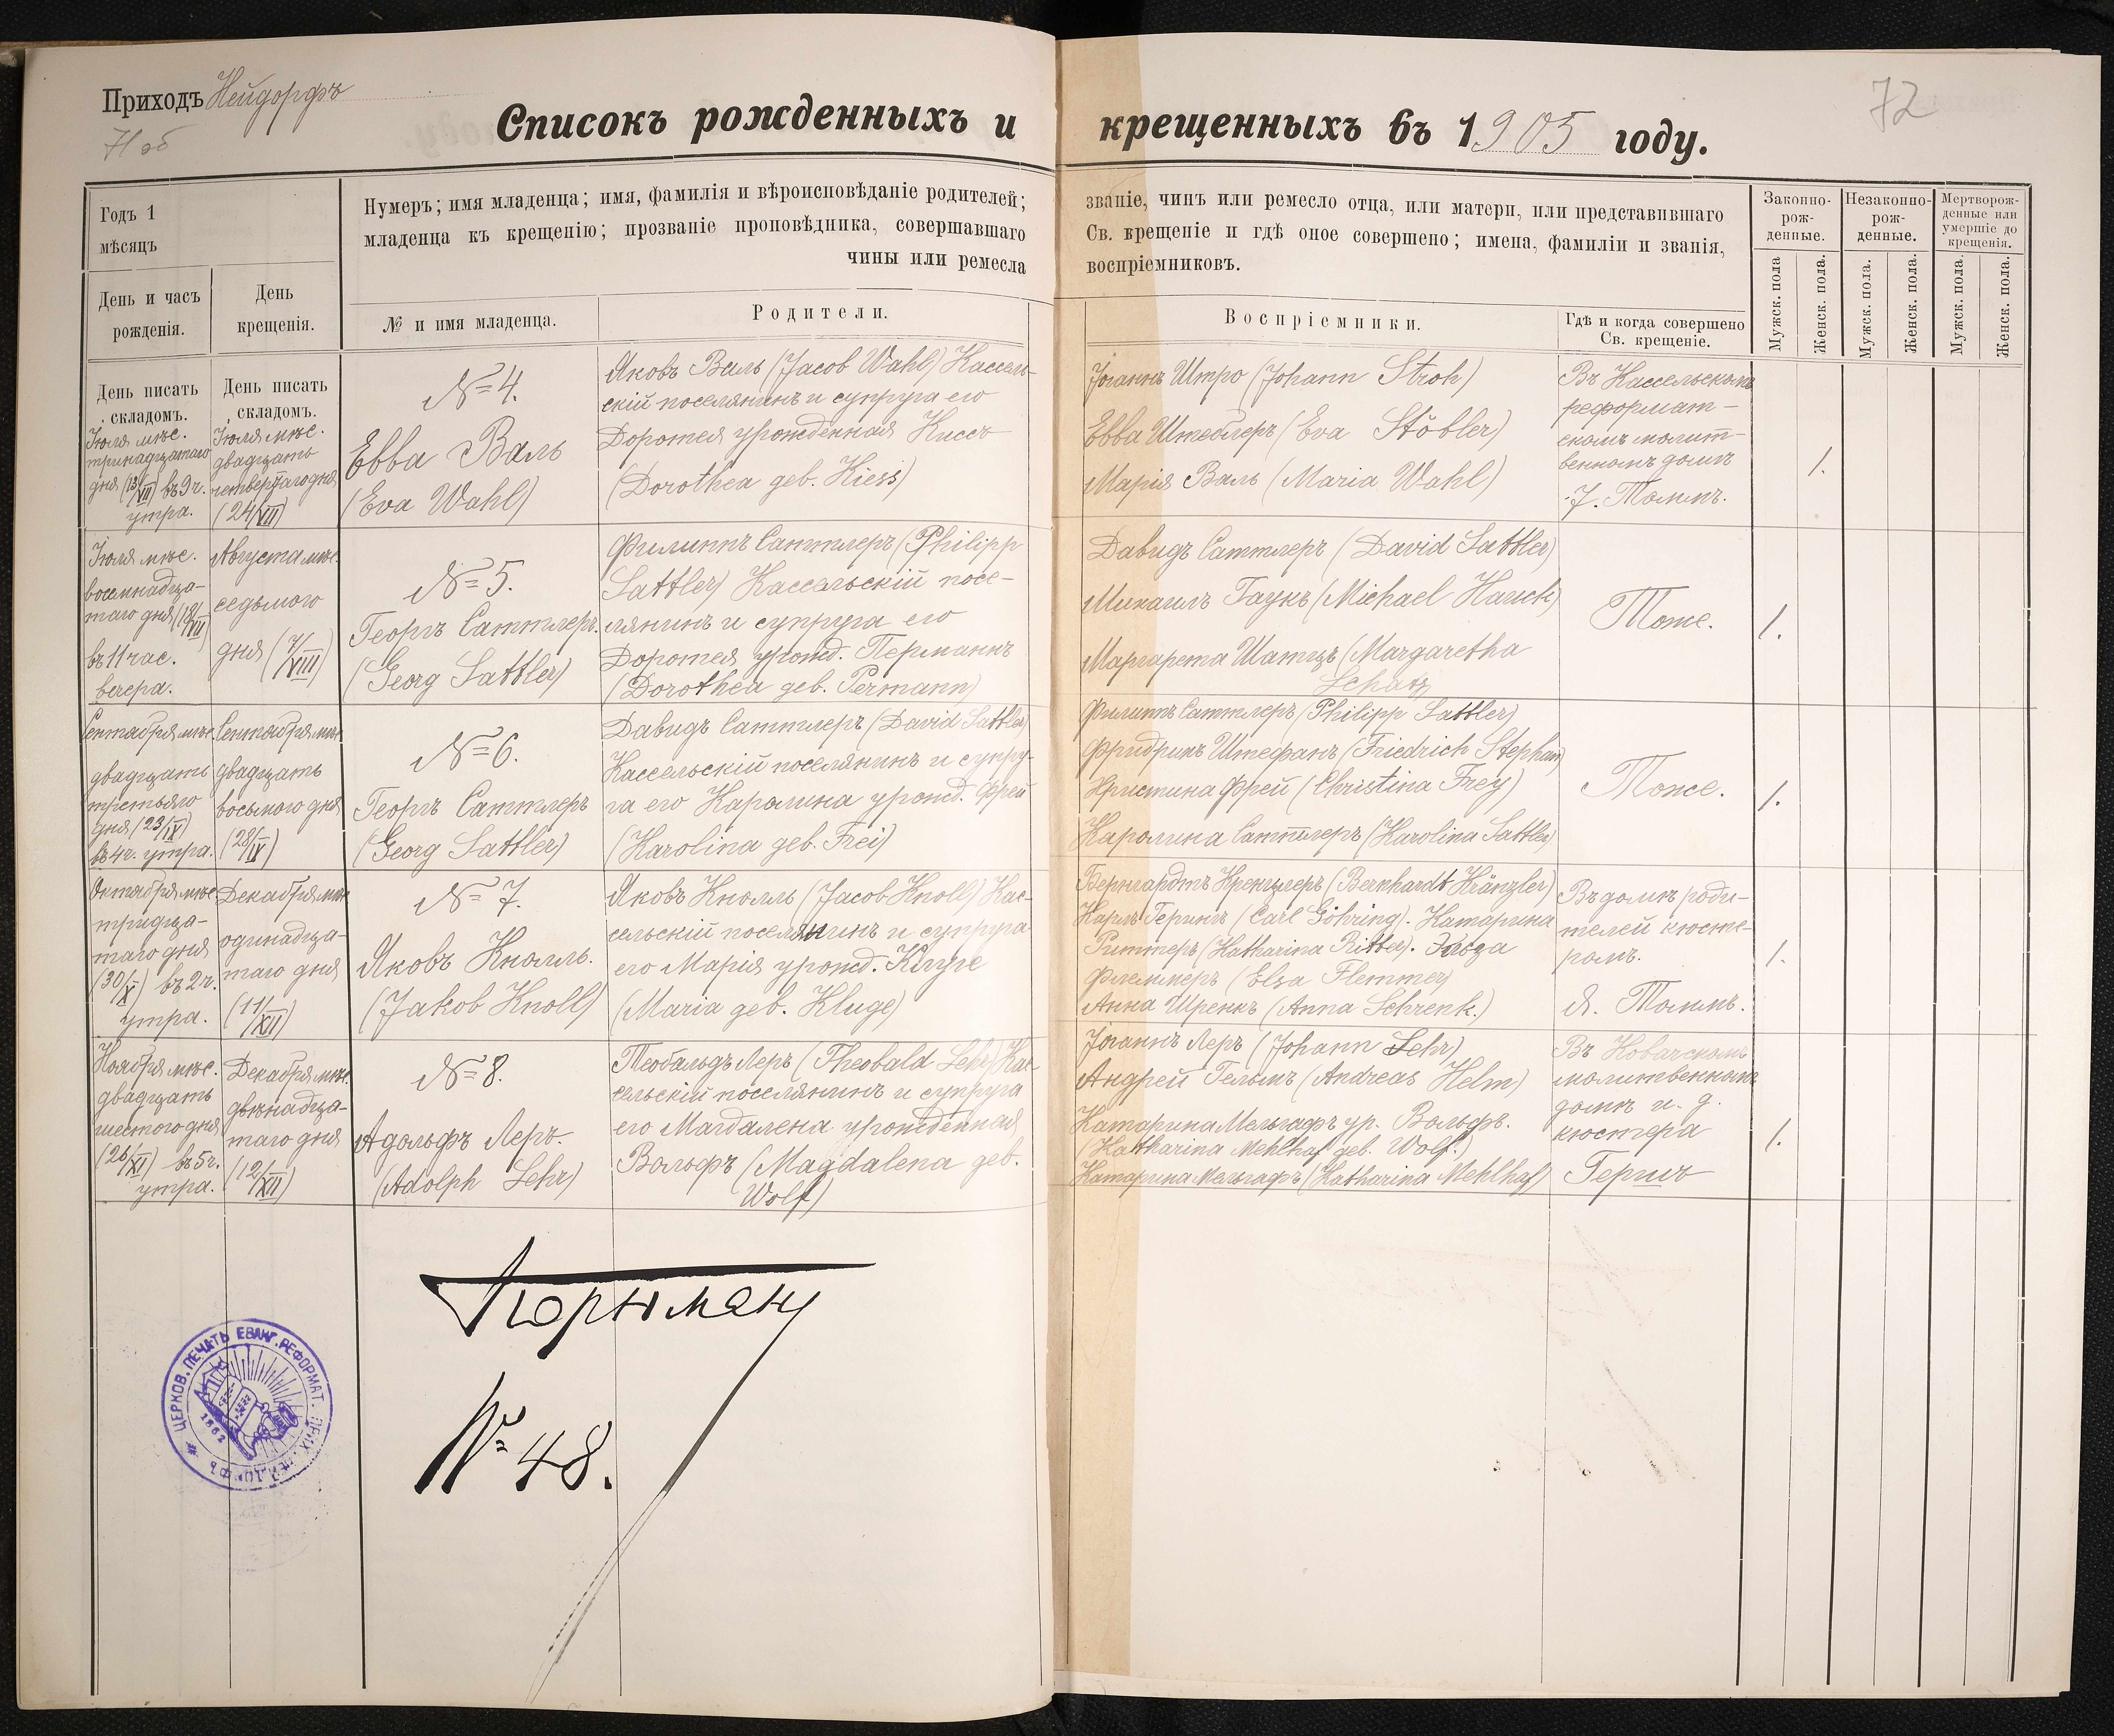 Приходъ Нейдорфъ
71 об
72
Списокъ рожденныхъ и крещенныхъ въ 1905 году.
Годъ 1
мѣсяцъ
Нумеръ; имя младенца; имя, фамилія и вѣроисповѣданіе родителей;
младенца къ крещенію; прозваніе проповѣдника, совершавшаго
чины или ремесла
званіе, чинъ или ремесло отца, или матери, или представившаго
Св. крещеніе и гдѣ оное совершено; имена, фамиліи и званія,
воспріемниковъ.
Законно-
рож-
денные.
Незаконно-
рож-
денные.
Мертворож-
денные или
умершіе до
крещенія.
День и часъ
рожденія.
День
крещенія.
№ и имя младенца.
Родители.
Воспріемники.
Гдѣ и когда совершено
Св. крещеніе.
Мужск. пола
Женск. пола.
Мужск. пола.
Женск. пола.
Мужск. пола.
Женск. пола.
День писать
складомъ.
День писать
складомъ.
Іюля мѣс.
тринадцатаго
дня (13/VII) въ 9 ч.
утра.
Іюля мѣс.
двадцать
четвертаго дня
(24/VII)
№ 4.
Евва Валь
(Eva Wahl)
Яковъ Валь (Jacob Wahl) Кассель-
скій поселянинъ и супруга его
Доротея урожденная Кисъ
(Dorothea geb. Kiess)
Іоганнъ Штро (Johann Stroh)
Евва Штеблеръ (Eva Stöbler)
Марія Валь (Maria Wahl)
Въ Кассельскомъ
реформат-
скомъ молит-
венномъ домѣ
Я. Толмъ.
1.
Іюля мѣс.
восемнадца-
таго дня (18/VII)
въ 11 час.
вечера.
Августа мѣс.
седьмого
дня (7/VIII)
№ 5.
Георгъ Саттлеръ.
(Georg Sattler)
Филиппъ Саттлеръ (Philipp
Sattler) Кассельскій посе-
лянинъ и супруга его
Доротея урожд. Перманнъ
(Dorothea geb. Permann)
Давидъ Саттлеръ (David Sattler)
Михаилъ Гаукъ (Michael Hauck)
Маргарета Шатцъ (Margaretha
Schatz
Тоже.
1.
Сентября мѣс.
двадцать
третьяго
дня (23/IX)
въ 4 ч. утра.
Сентября мѣс.
двадцать
восьмого дня
(28/IX)
№ 6.
Георгъ Саттлеръ
(Georg Sattler)
Давидъ Саттлеръ (David Sattler)
Кассельскій поселянинъ и супру-
га его Каролина урожд. Фрей
(Karolina geb. Frei)
Филиппъ Саттлеръ (Philipp Sattler)
Фридрихъ Штефанъ (Friedrich Stephan)
Христина Фрей (Christina Frey)
Каролина Саттлеръ (Karolina Sattler)
Тоже.
1.
Октября мѣс.
тридца-
таго дня
(30/X) въ 2 ч.
утра.
Декабря мѣс.
одинадца-
таго дня
(11/XII)
№ 7.
Яковъ Кнолль.
(Jakob Knoll)
Яковъ Кнолль (Jacob Knoll) Кас-
сельскій поселянинъ и супруга
его Марія урожд. Клуге
(Maria geb. Kluge)
Бернгардтъ Кренцлеръ (Bernhardt Kränzler)
Карлъ Герингъ (Carl Göhring). Катарина
Риттеръ (Katharina Ritter). Эльза
Флеммеръ (Elsa Flemmer)
Анна Шренкъ (Anna Schrenk.)
Въ домѣ роди-
телей кюсте-
ромъ.
Я. Толмъ.
1.
Ноября мѣс.
двадцать
шестого дня
(26/XI) въ 5 ч.
утра.
Декабря мѣс.
двѣнадца-
таго дня
(12/XII)
№ 8.
Адольфъ Леръ.
(Adolph Lehr)
Теобальдъ Леръ (Theobald Lehr) Кас-
сельскій поселянинъ и супруга
его Магдалена урожденная
Вольфъ (Magdalena geb.
Wolf)
Іоганнъ Леръ (Johann Lehr)
Андрей Гельмъ (Andreas Helm)
Катарина Мельгафъ ур. Вольфъ.
(Katharina Mehlhaf geb. Wolf.)
Катарина Мельгафъ (Katharina Mehlhaf)
Въ Ковачскомъ
молитвенномъ
домѣ и. д.
кюстера
1.
№ 48.
ЦЕРКОВ. ПЕЧАТЬ ЕВАНГ. РЕФОРМАТ. ПРИХ. НЕЙДОРФЪ
1862